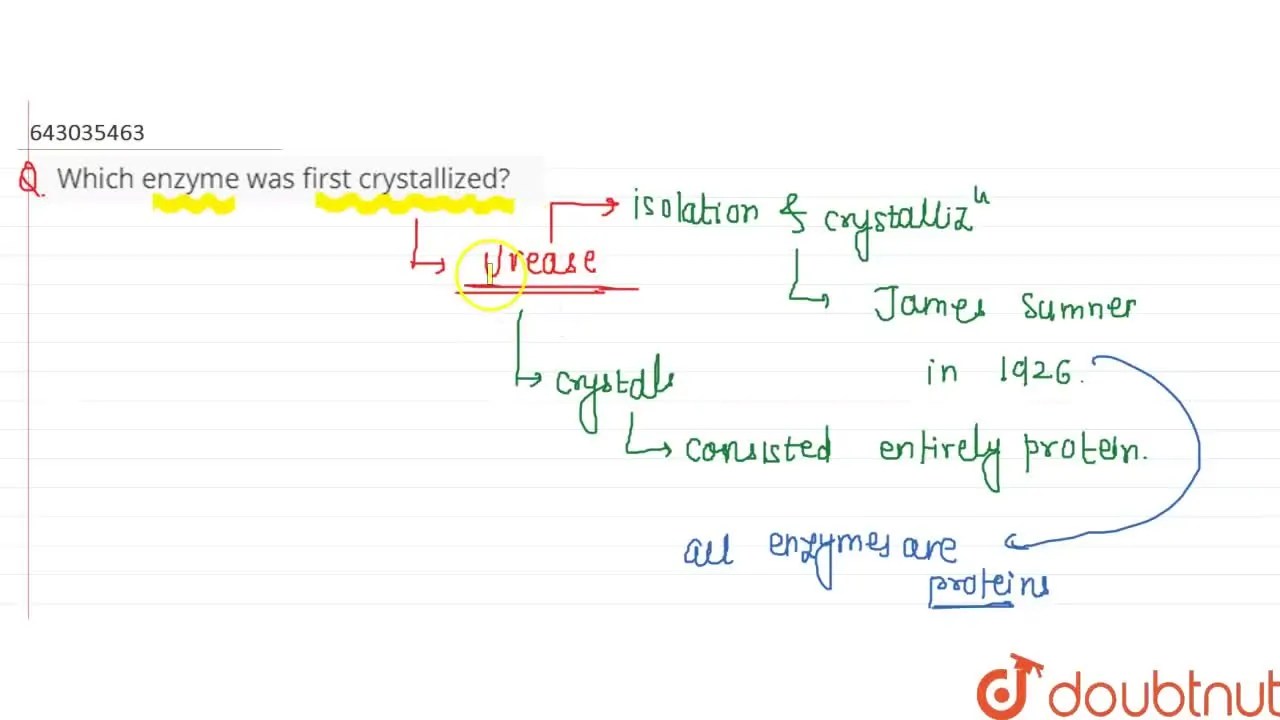 643035463
Q. Which enzyme was first crystallized?
isolation & crystallizⁿ
Urease
James Sumner
in 1926.
crystals
consisted entirely protein.
all enzymes are
proteins
doubtnut